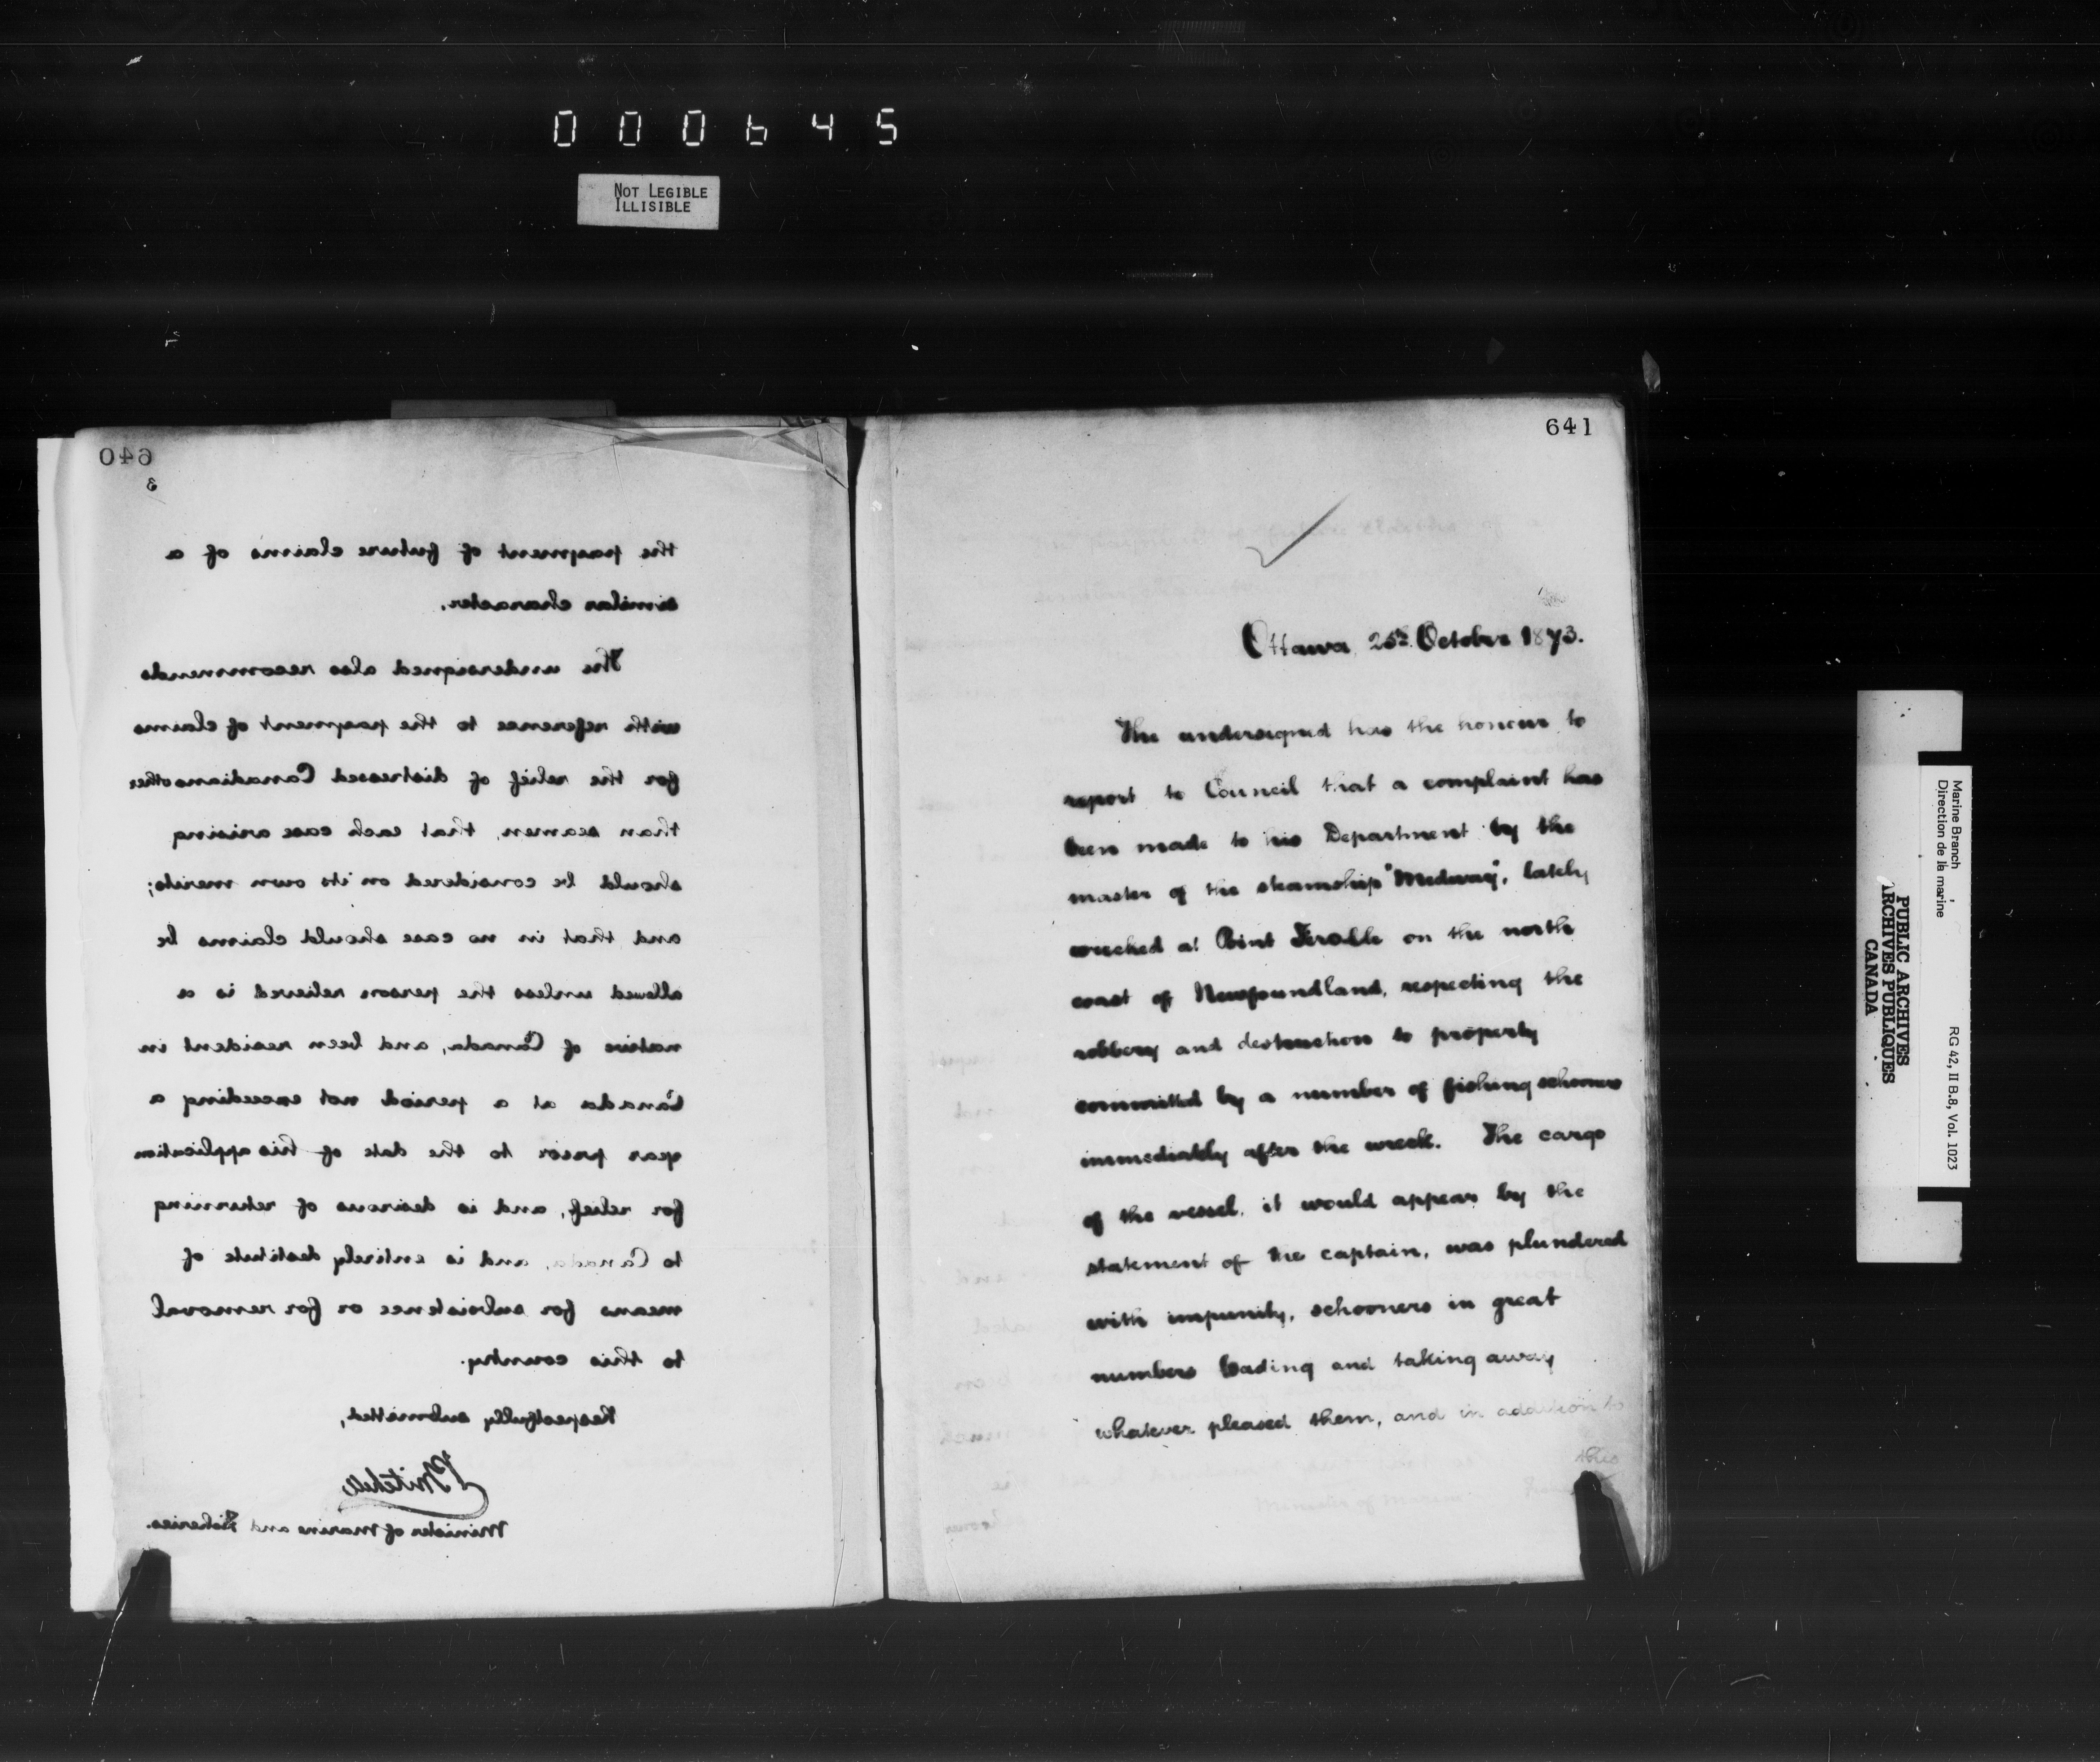 000645
NOT LEGIBLE
ILLISIBLE
640
3
the payment of future claims of a
similar character.
The undersigned also recommends
with reference to the payment of claims
for the relief of distressed Canadians other
than seamen, that each case arising
should be considered on its own merits;
and that in no case should claims be
allowed unless the person relieved is a
native of Canada, and been resident in
Canada at a period not exceeding a
year prior to the date of his application
for relief, and is desirous of returning
to Canada, and is entirely destitute of
means for subsistence or for removal
to this country.
Respectfully submitted,
P Mitchell
Minister of Marine and Fisheries.
641
Ottawa, 25th October 1873.
The undersigned has the honour to
report to Council that a complaint has
been made to his Department by the
master of the steamship "Medway", lately
wrecked at Point Ferolle on the north
coast of Newfoundland, respecting the
robbery and destruction to property
committed by a number of fishing schooners
immediately after the wreck. The cargo
of the vessel, it would appear by the
statement of the captain, was plundered
with impunity, schooners in great
numbers loading and taking away
whatever pleased them, and in addition to
this
Marine Branch
Direction de la marine
RG 42, II B.8, Vol. 1023
PUBLIC ARCHIVES
ARCHIVES PUBLIQUES
CANADA